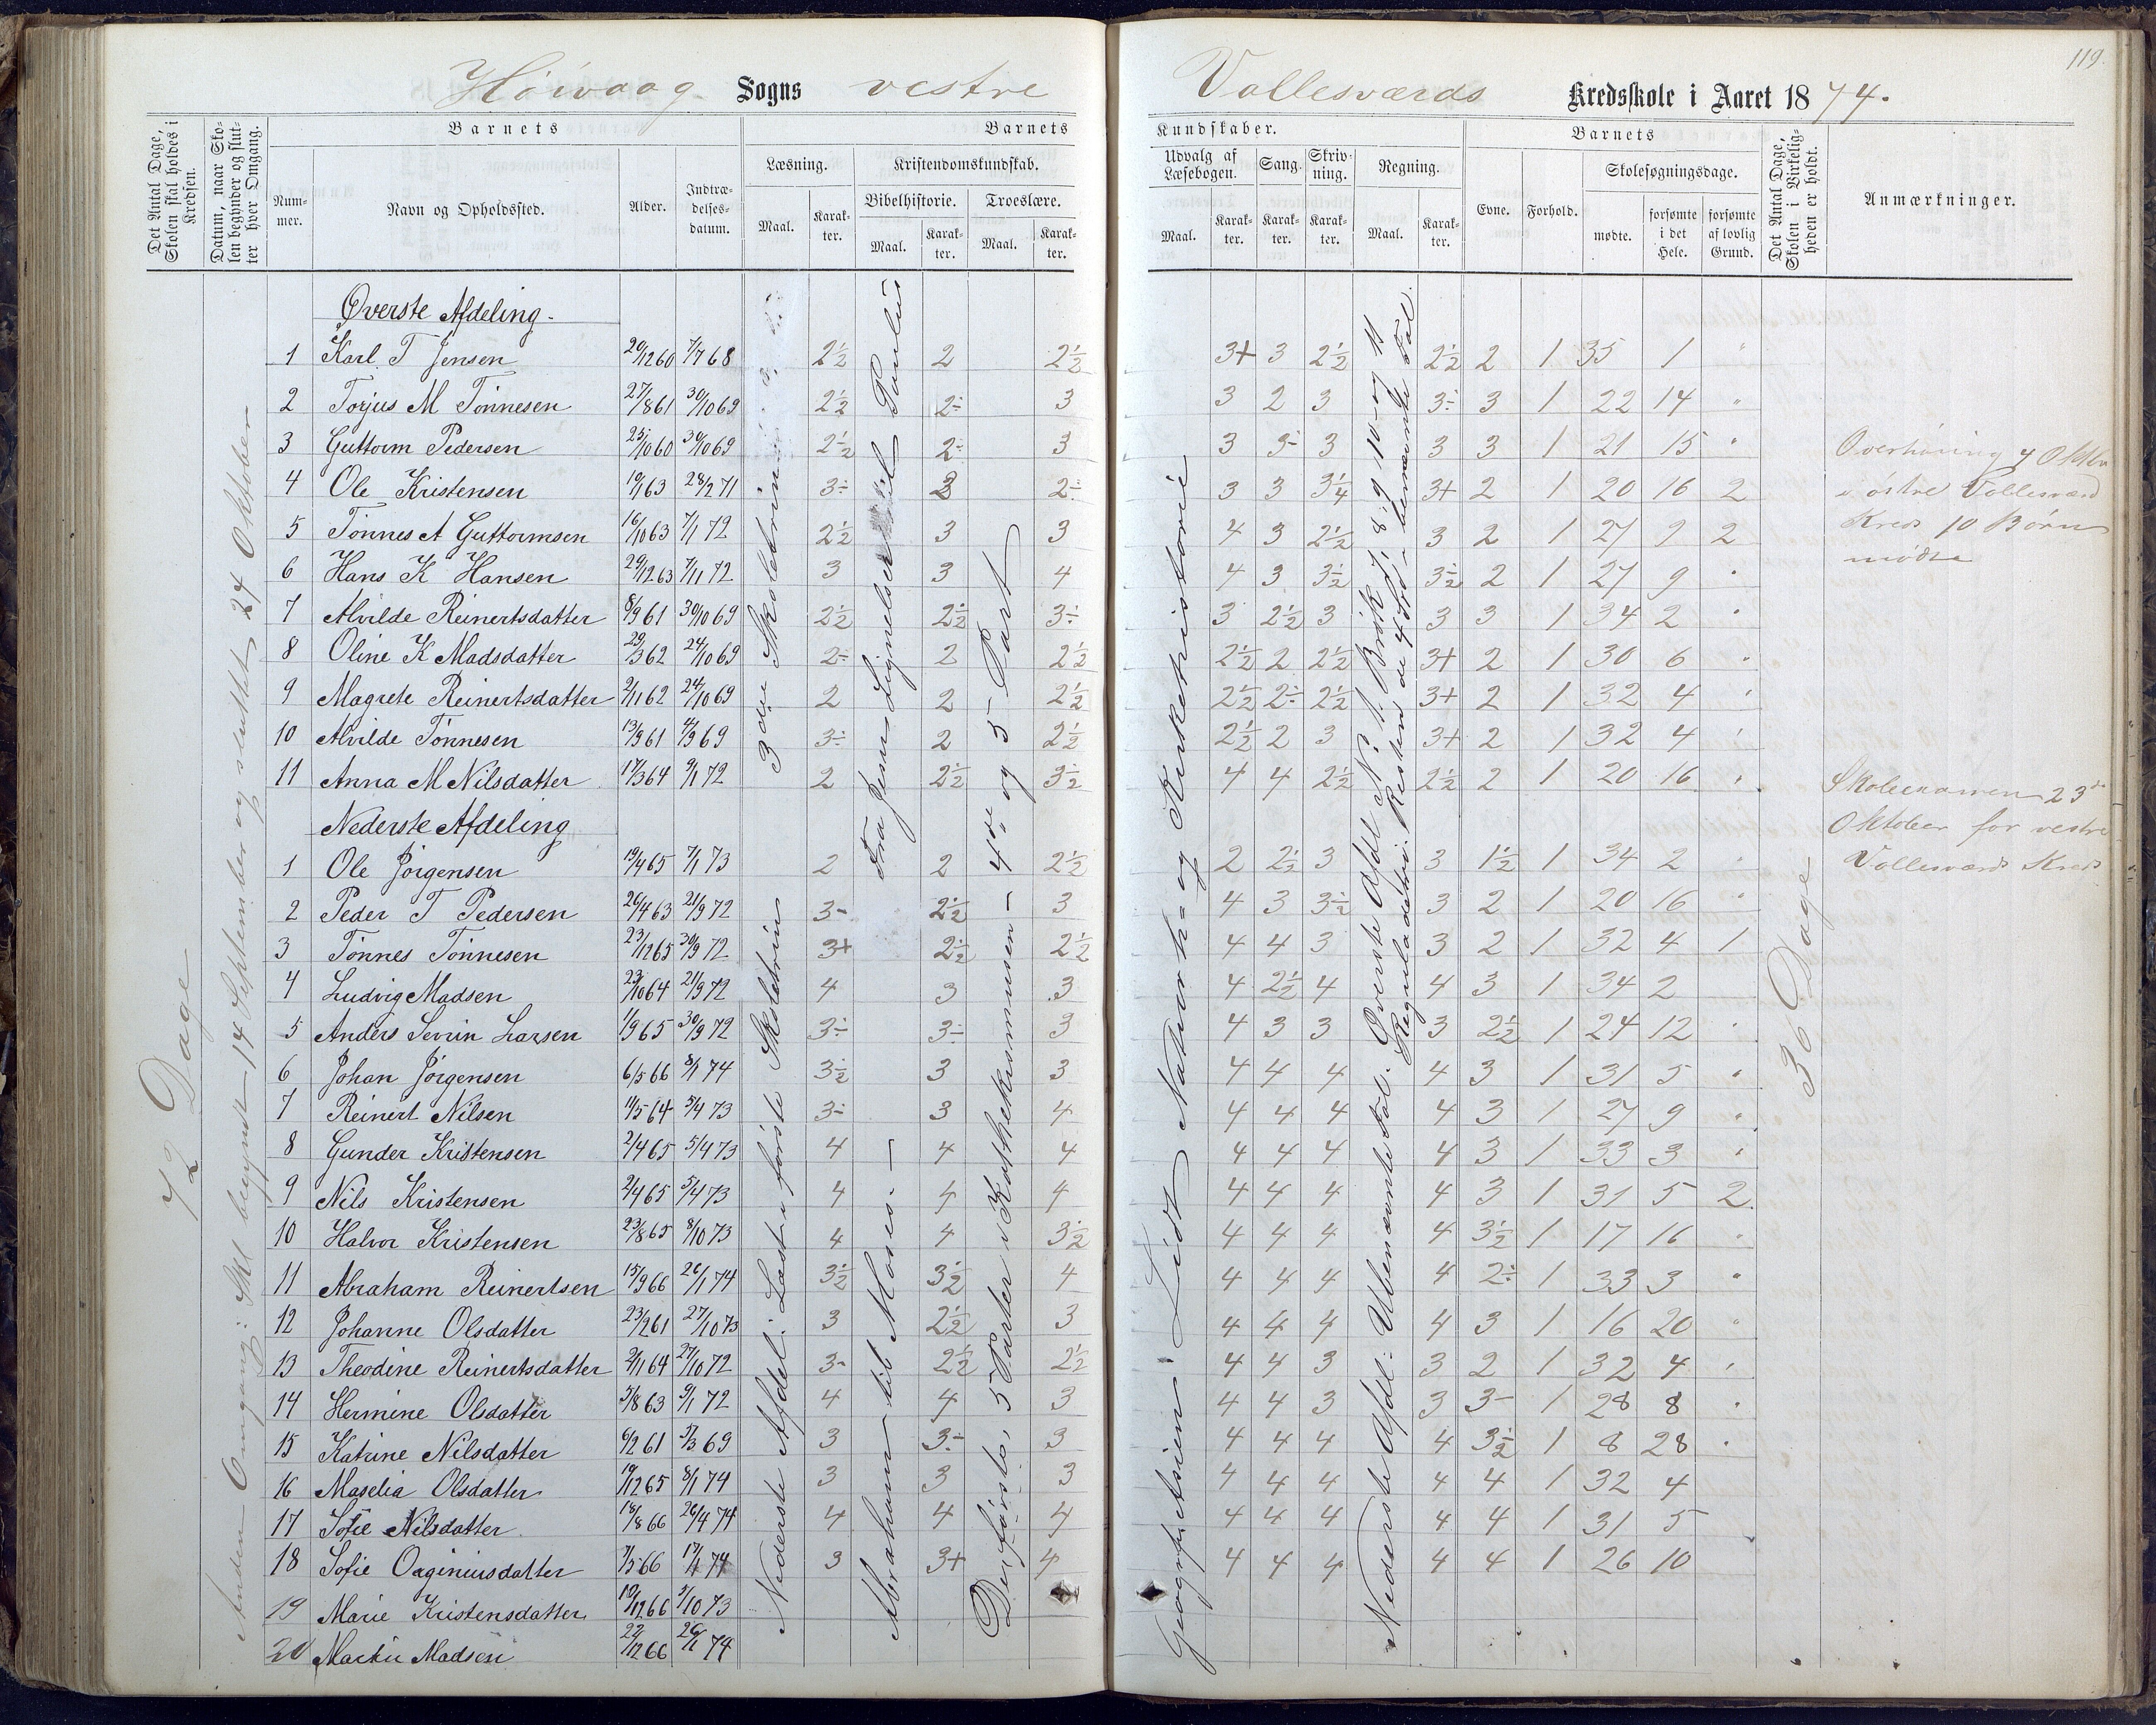 119.
Høivaag Sogns vestre Vallesværds Kredsskole i Aaret 1874.
Det Antal Dage, Skolen skal holdes i Kredsen.
Datum, naar Skolen begynder og slutter hver Omgang.
Barnets
Nummer.
Navn og Opholdssted.
Alder.
Indtrædelsesdatum.
Barnets
Læsning.
Maal.
Karakter.
Kristendomskundskab.
Bibelhistorie.
Maal.
Karakter.
Troeslære.
Maal.
Karakter.
Kundskaber.
Udvalg af Læsebogen.
Maal.
Karakter.
Sang.
Karakter.
Skrivning.
Karakter.
Regning.
Maal.
Karakter.
Barnets
Evne.
Forhold.
Skolesøgningsdage.
mødte.
forsømte i det Hele.
forsømte af lovlig Grund.
Det Antal Dage, Skolen i Virkeligheden er holdt.
Anmærkninger.
72 Dage
Anden Omgang: Skl begyndt 14 September og sluttet 24 Oktober
Øverste Afdeling.
1 Karl T Jensen 20/12 60 7/7 68 2½ 2 2½ 3+ 3 2½ 2½ 2 1 35 1 "
2 Torjus M Tönnesen 27/8 61 30/10 69 2½ 2÷ 3 3 2 3 3÷ 3 1 22 14 "
3 Guttorm Pedersen 25/10 60 30/10 69 2½ 2÷ 3 3 3÷ 3 3 3 1 21 15 "
4 Ole Kristensen 19/1 63 28/2 71 3÷ 2 2÷ 3 3 3¼ 3+ 2 1 20 16 2
5 Tönnes A Guttormsen 16/10 63 7/1 72 2½ 3 3 4 3 2½ 3 2 1 27 9 2
6 Hans K Hansen 29/12 63 7/11 72 3 3 4 4 3 3½ 3½ 2 1 27 9 "
7 Alvilde Reinertsdatter 8/9 61 30/10 69 2½ 2½ 3÷ 3 2½ 3 3 3 1 34 2 "
8 Oline K Madsdatter 29/3 62 24/10 69 2÷ 2 2½ 2½ 2 2½ 3+ 2 1 30 6 "
9 Magrete Reinertsdatter 2/11 62 24/10 69 2 2 2½ 2½ 2÷ 2½ 3+ 2 1 32 4 "
10 Alvilde Tönnesen 13/9 61 4/9 69 3÷ 2 2½ 2½ 2 3 3+ 2 1 32 4 "
11 Anna M Nilsdatter 17/3 64 9/1 72 2 2½ 3½ 4 4 2½ 2½ 2 1 20 16 "
Nederste Afdeling
1 Ole Jörgensen 19/4 65 7/1 73 2 2 2½ 2 2½ 3 3 1½ 1 34 2 "
2 Peder T Pedersen 26/4 63 21/9 72 3- 2½ 3 4 3 3½ 3 2 1 20 16 "
3 Tönnes Tönnesen 23/12 65 30/9 72 3+ 2½ 2½ 4 4 3 3 2 1 32 4 1
4 Ludvig Madsen 23/10 64 21/9 72 4 3 3 4 2½ 4 4 3 1 34 2
5 Anders Severin Larsen 11/9 65 30/9 72 3÷ 3÷ 3 4 3 3 3 2½ 1 24 12 "
6 Johan Jörgensen 6/5 66 8/1 74 3½ 3 3 4 4 4 4 3 1 31 5 "
7 Reinert Nilsen 11/5 64 5/4 73 3÷ 3 4 4 4 4 4 3 1 27 9 "
8 Gunder Kristensen 2/4 65 5/4 73 4 4 4 4 4 4 4 3 1 33 3 "
9 Nils Kristensen 2/4 65 5/4 73 4 4 4 4 4 4 4 3 1 31 5 2
10 Halvor Kristensen 23/8 65 8/10 73 4 4 3½ 4 4 4 4 3½ 1 17 16 "
11 Abraham Reinertsen 15/9 66 26/1 74 3½ 3½ 4 4 4 4 4 2÷ 1 33 3 "
12 Johanne Olsdatter 23/2 61 27/10 73 3 2½ 3 4 4 4 4 3 1 16 20 "
13 Theodine Reinertsdatter 2/11 64 27/10 72 3- 2½ 2½ 4 4 3 3 2 1 32 4 "
14 Hermine Olsdatter 5/8 63 9/1 72 4 4 3 4 4 3 3 3- 1 28 8 "
15 Katrine Nilsdatter 6/2 61 5/3 69 3 3÷ 3 4 4 4 4 3½ 1 8 28 "
16 Maselia Olsdatter 19/12 65 8/1 74 3 3 3 4 4 4 4 4 1 32 4
17 Sofie Nilsdatter 18/8 66 26/4 74 4 4 4 4 4 4 4 4 1 31 5
18 Sofie Oaginiusdatter 7/5 66 17/1 74 3 3+ 4 4 4 4 4 4 1 26 10
19 Marie Kristensdatter 10/12 66 5/10 73
20 Madsen 22/12 66 26/1 74
3die Skoletrin
Nederste Afdel: Læst i förste Skoletrin
Fra Jesu Lignelser til Paulus
Abraham til Moses.
4de og 5 Part
Den förste, 5 Parter i Kathekismusen
Geografi Asien. Lidt Natur- og Kirkehistorie
Øverste Afdl No 1. Brök 7, 8 9 10 og 11
Reguladetri. Resten de 4 Sp i benævnte Tal.
Nederste Afdl: Ubenævnte Tal.
36 Dage
Overhöring 7 Oktbr
i östre Vallesværd
Kreds 10 Börn
mödte
Skoleexamen 23de
Oktober for vestre
Vallesværds Kreds